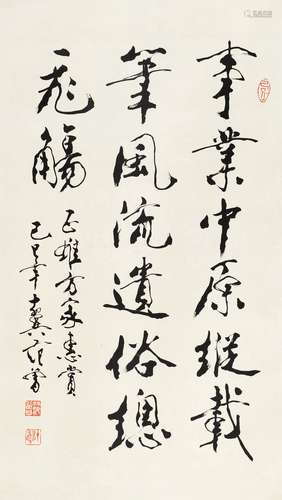 事業中原縱載
筆風流遺俗總
飛觴
正雄方家惠賞
己巳年十翼范曾